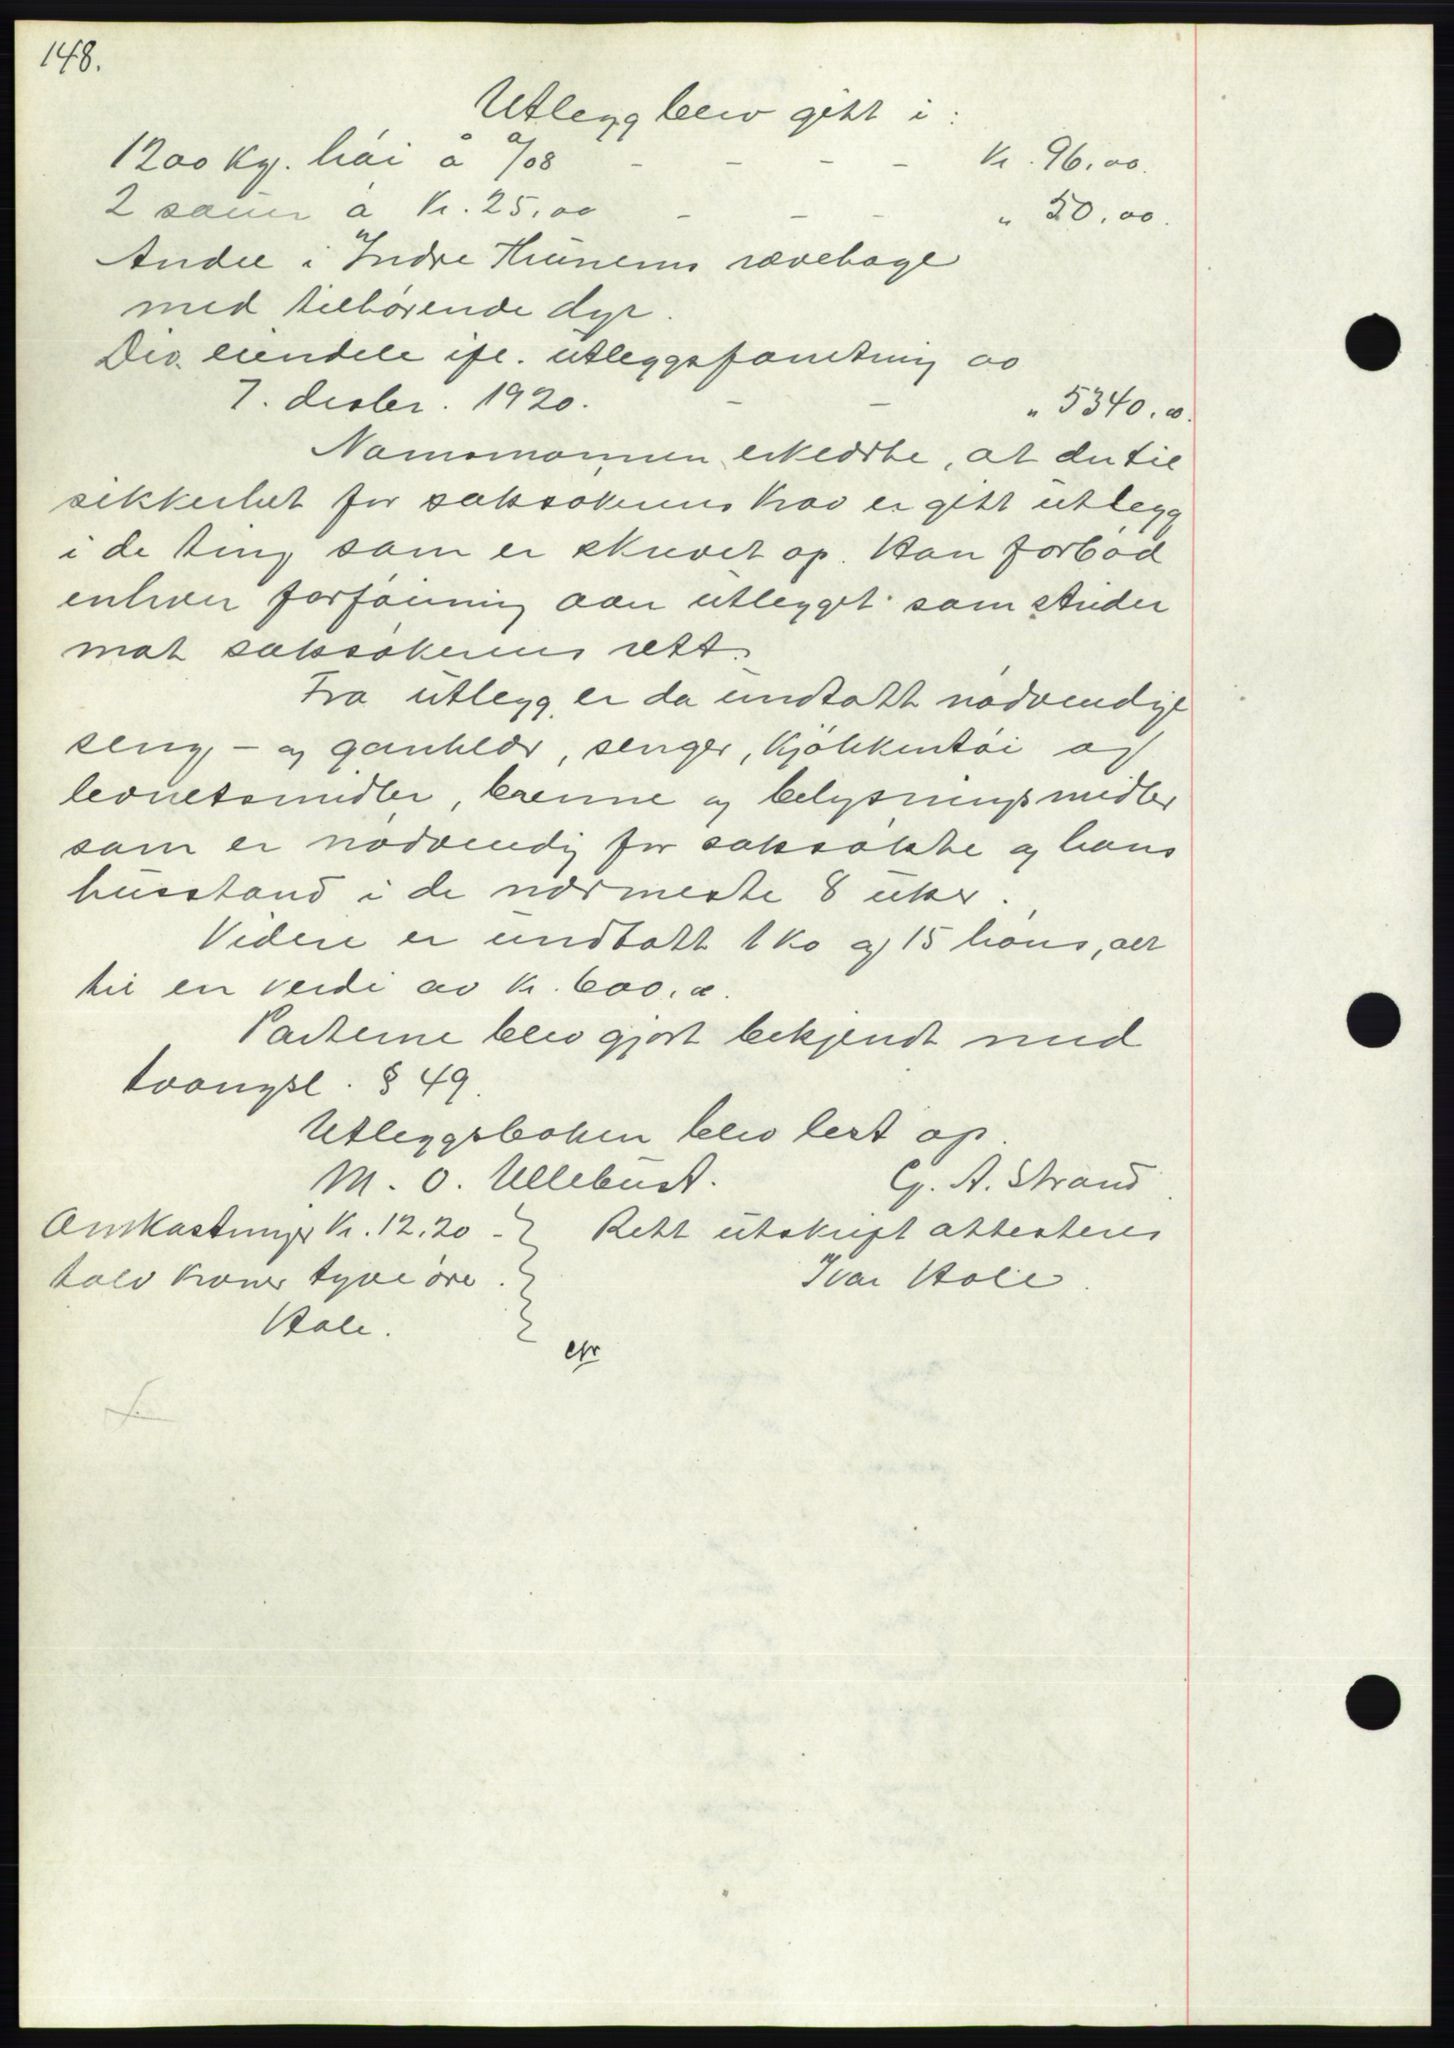 148.
Utlegg blev gitt i:
1200 kg. høi à 0/08 - - - - kr. 96.00.
2 sauer à kr. 25.00 - - - " 50.00.
Andel i Indre Hunems revehage
med tilhørende dyr.
Div. eiendele ifl. utleggsforretning av
7. desbr. 1920. - - " 5340.00.
Namsmannen erklærte, at der til
sikkerhet for saksøkerens krav er gitt utlegg
i de ting som er skrevet op. Han forbød
enhver forføining over utlegget som strider
mot saksøkerens rett.
Fra utlegg er da undtatt nødvendige
seng- og gangklær, senger, kjøkkentøi og
levnetsmidler, brenne og belysningsmidler
som er nødvendig for saksøkte og hans
husstand i de nærmeste 8 uker.
Videre er undtatt 1 ko og 15 høns, alt
til en verdi av kr. 600.00.
Parterne blev gjort bekjendt med
tvangsl. § 49.
Utleggsboken blev lest op.
M. O. Ullebust. G. A. Strand
Omkostninger kr. 12.20 - Rett utskrift attesteres
tolv kroner tyve øre. Ivar Hole.
Hole.